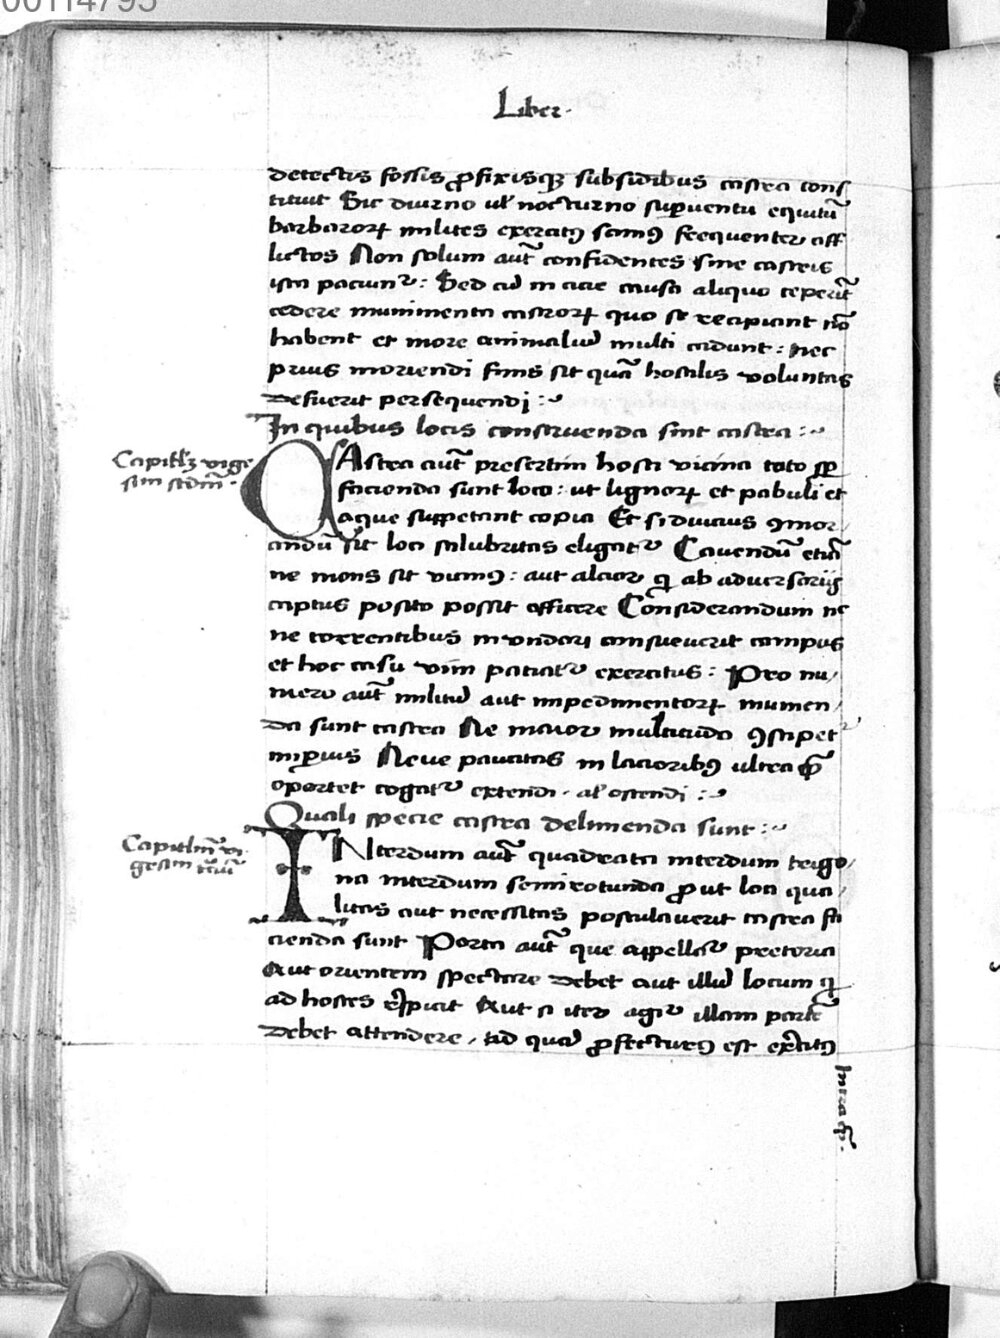 00114795
Liber·
detectis fossis ꝓfixisqꝫ subsidibus castra cons
tituit Sic diurno ul̄ nocturno suꝑuentu equitū
barbaroꝝ milites exercitꝰ scimꝰ frequenter aff
lictos Non solum aut̄ confidentes sine castris
ista paciunt᷑: Sed cū in acie causa aliqua ceperīt
cedere munimenta castroꝝ quo se recipiant nō
habent et more animaliū multi cadunt: nec
prius moriendi finis sit quā hostilis voluntas
defuerit persequendi:~
In quibus locis construenda sint castra:~
Capitlꝫ vige
sim scdm̄·
CAstra aut̄ presertim hosti vicina tuto sꝑ
facienda sunt loco: ut lignoꝝ et pabuli et
aque suppetant copia Et si diucius ꝯmor/
andū sit loci salubritas eligat᷑ Cauendū etiā
ne mons sit vicinꝰ: aut alcior qi ab aduersarijs
captus posito possit officere Considerandum ne
ne torrentibus inundari consueuerit campus
et hoc casu vim paciat᷑ exercitus: Pro nu/
mero aut̄ militū aut impedimentoꝝ munien/
da sunt castra Ne maior multitudo ꝯstipet᷑
inꝑuis Neue paucitas in lacioribꝰ ultra qm̄
oportet cogat᷑ extendi· al' ostendi:~
Quali specie castra delinienda sunt:~
Capitlm̄ vi
gesim tc̄iū
INterdum aut̄ quadrata interdum trigo/
na interdum semirotunda ꝓut loci qua/
litas aut necessitas postulauerit castra fa
cienda sunt Porta aut̄ que appellat᷑ pretoria
Aut orientem spectare debet aut illū locum qi
ad hostes r̄spicit Aut si iter agit᷑ illam partē
debet attendere / ad quā ꝓfecturꝰ est ex̄citꝰ
Intra qm̄·